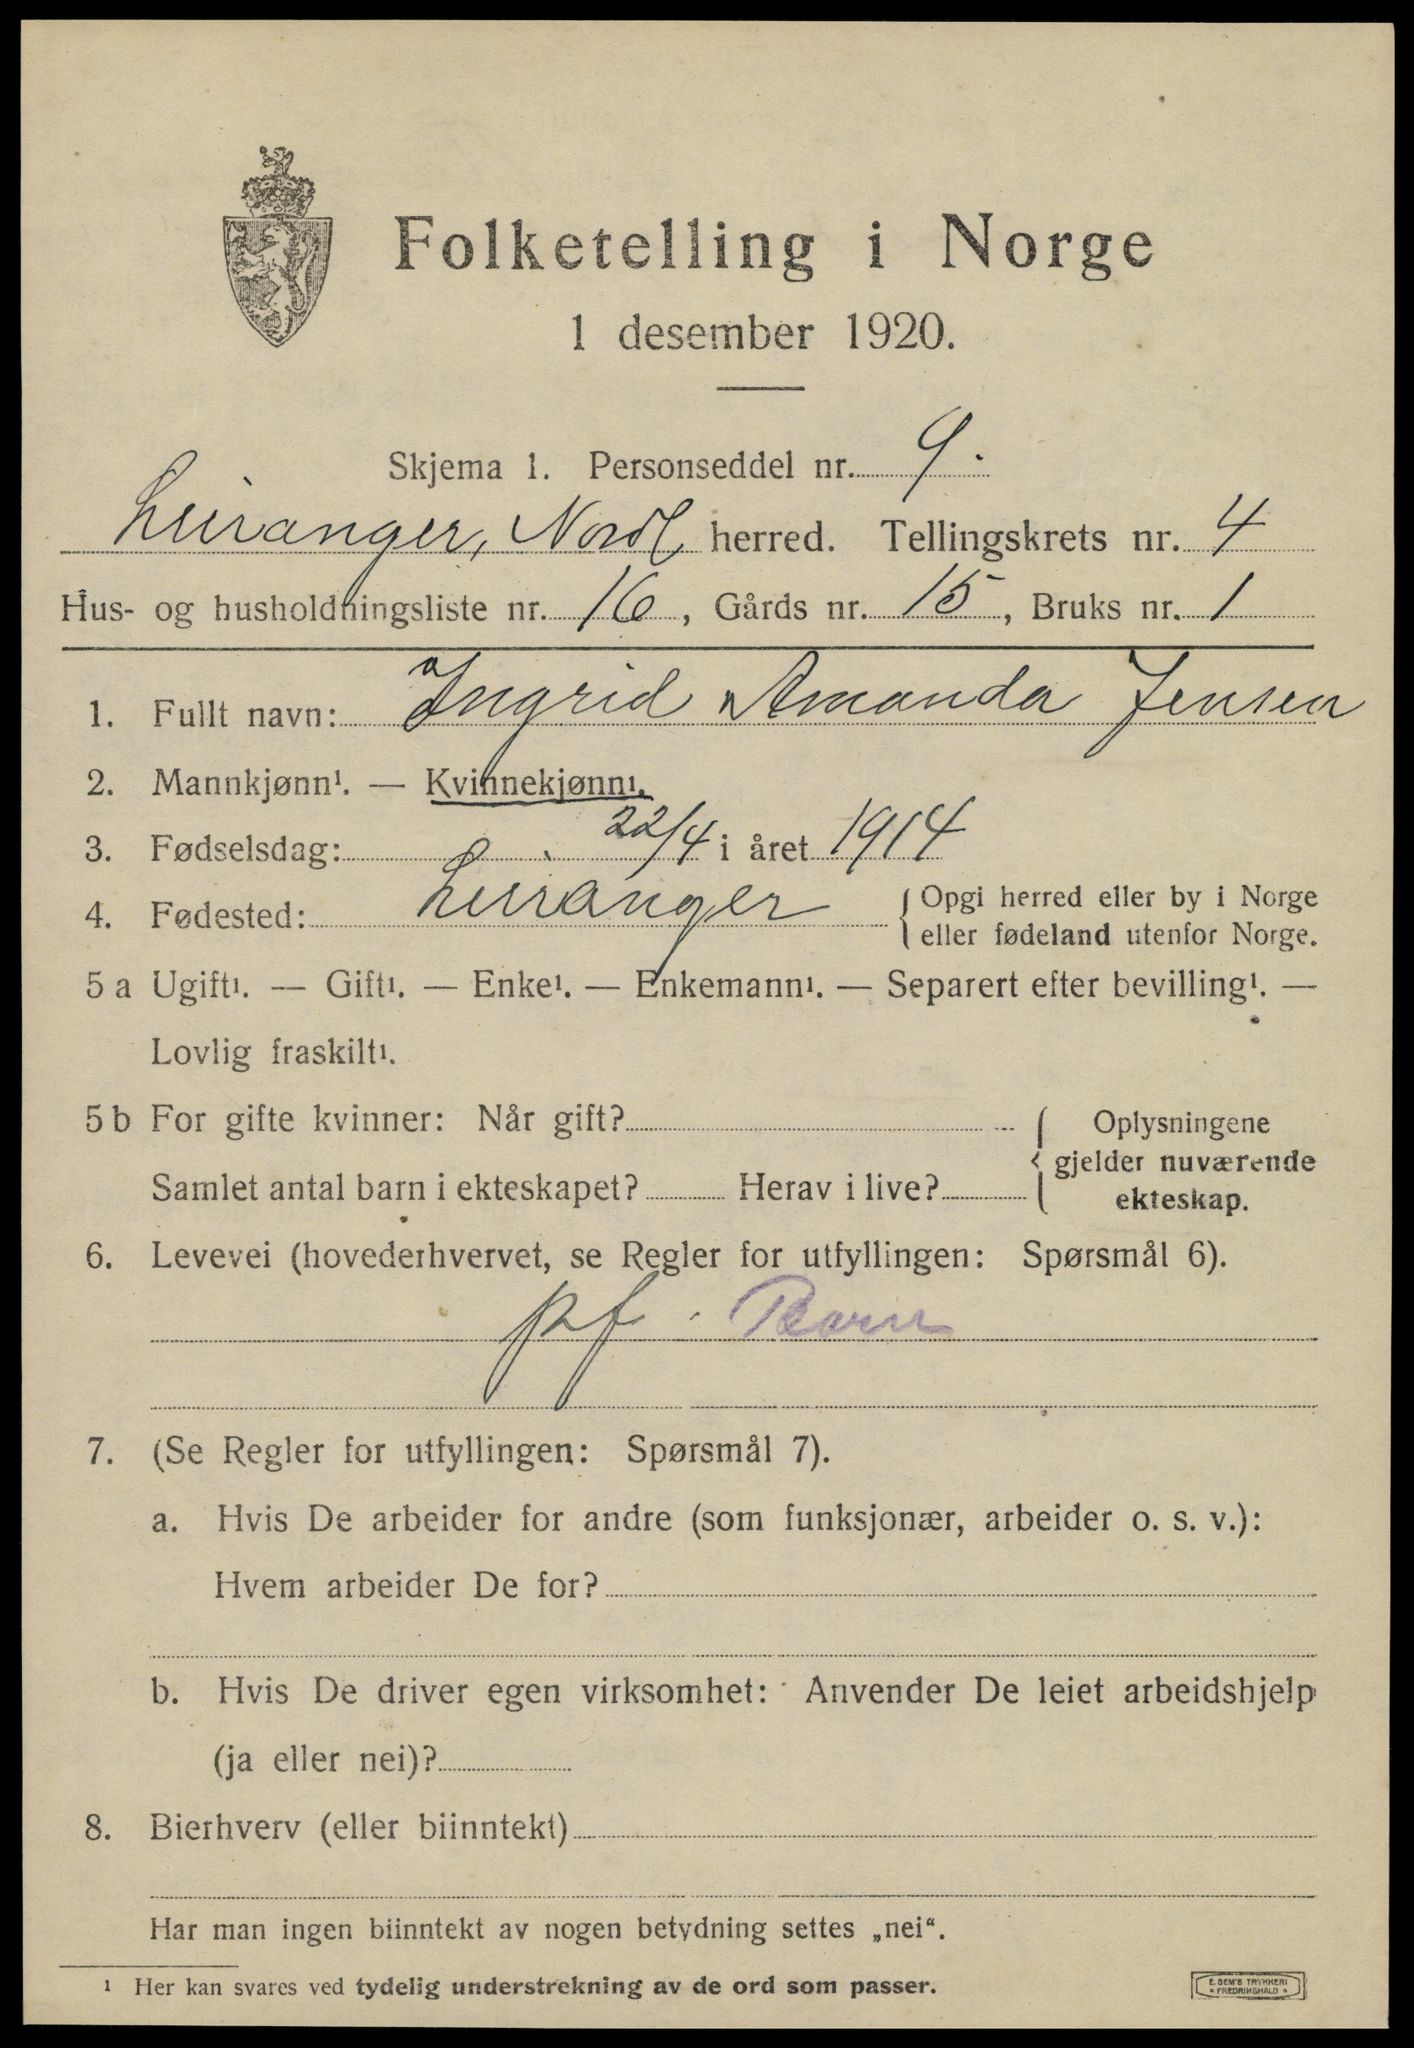 Folketelling i Norge
1 desember 1920.
Skjema 1. Personseddel nr. 9.
Leiranger, Nordl herred. Tellingskrets nr. 4
Hus- og husholdningsliste nr. 16, Gårds nr. 15, Bruks nr. 1
1. Fullt navn: Ingrid Amanda Jensen
2. Mannkjønn¹. — Kvinnekjønn¹.
3. Fødselsdag: 22/4 i året 1914
4. Fødested: Leiranger { Opgi herred eller by i Norge
eller fødeland utenfor Norge.
5 a Ugift¹. — Gift¹. — Enke¹. — Enkemann¹. — Separert efter bevilling¹. —
Lovlig fraskilt¹.
5 b For gifte kvinner: Når gift?
Samlet antal barn i ekteskapet? Herav i live?
{ Oplysningene
gjelder nuværende
ekteskap.
6. Levevei (hovederhvervet, se Regler for utfyllingen: Spørsmål 6).
pf. Barn
7. (Se Regler for utfyllingen: Spørsmål 7).
a. Hvis De arbeider for andre (som funksjonær, arbeider o. s. v.):
Hvem arbeider De for?
b. Hvis De driver egen virksomhet: Anvender De leiet arbeidshjelp
(ja eller nei)?
8. Bierhverv (eller biinntekt)
Har man ingen biinntekt av nogen betydning settes „nei“.
¹ Her kan svares ved tydelig understrekning av de ord som passer.
E. SEM'S TRYKKERI
* FREDRIKSHALD *